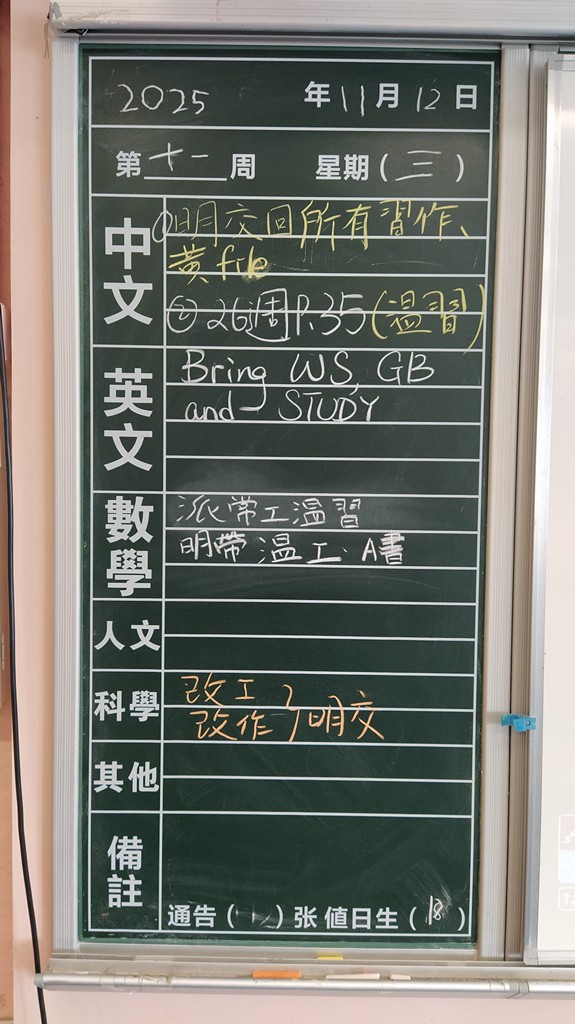 2025 年 11 月 12 日
第 十一 周 星期 ( 三 )
中文
①明交回所有習作、
黃file
② 26週 P.35 (溫習)
英文
Bring WS, GB
and STUDY
數學
派常工溫習
明帶溫工、A書
人文
科學
改工
改作 } 明交
其他
備註
通告 ( 1 ) 张 值日生 ( 18 )